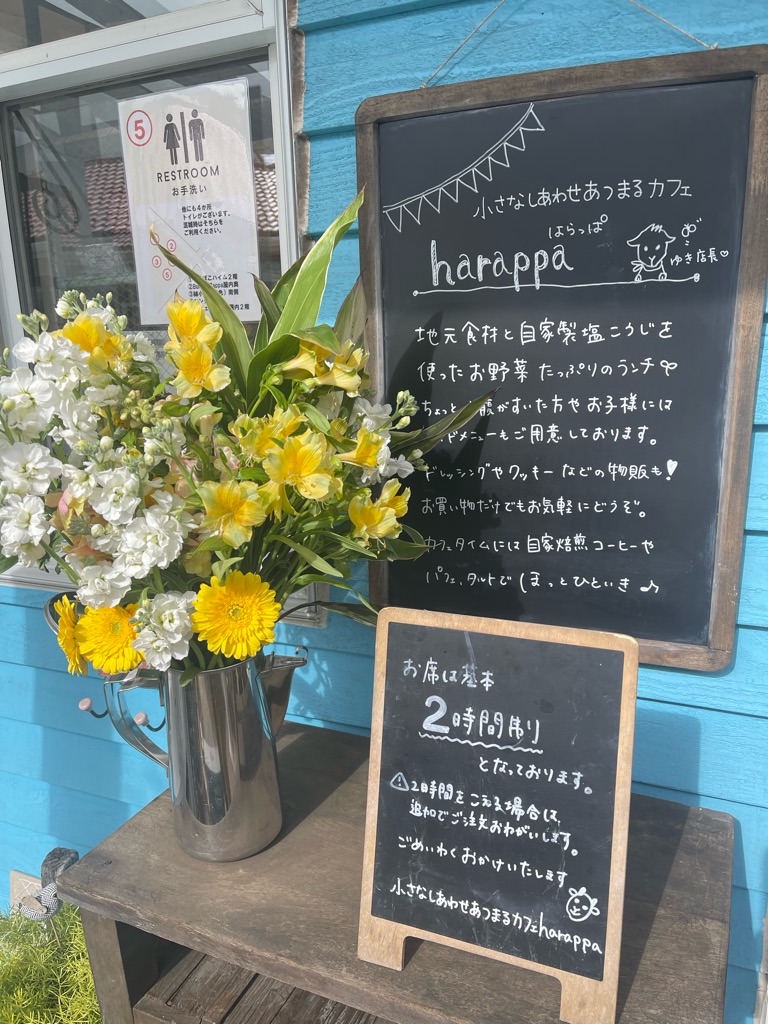 5
RESTROOM
お手洗い
他にも4か所
トイレがございます。
混雑時はそちらを
ご利用ください。
小さなしあわせあつまるカフェ
はらっぱ
harappa
ゆき店長♡
地元食材と自家製塩こうじを
使ったお野菜たっぷりのランチ
ちょっと 腹がすいた方やお子様には
ドメニューもご用意しております。
ドレッシングやクッキーなどの物販も!
お買い物だけでもお気軽にどうぞ。
カフェタイムには自家焙煎コーヒーや
パフェ、タルトでほっとひといき♪
お席は基本
2時間制り
となっております。
⚠2時間をこえる場合は、
追加でご注文おねがいします。
ごめいわくおかけいたします
小さなしあわせあつまるカフェharappa